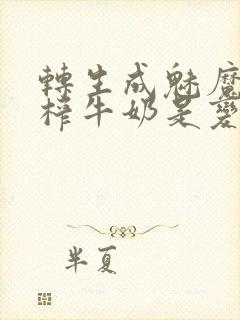 轉生成魅魔
榨牛奶是變
半夏